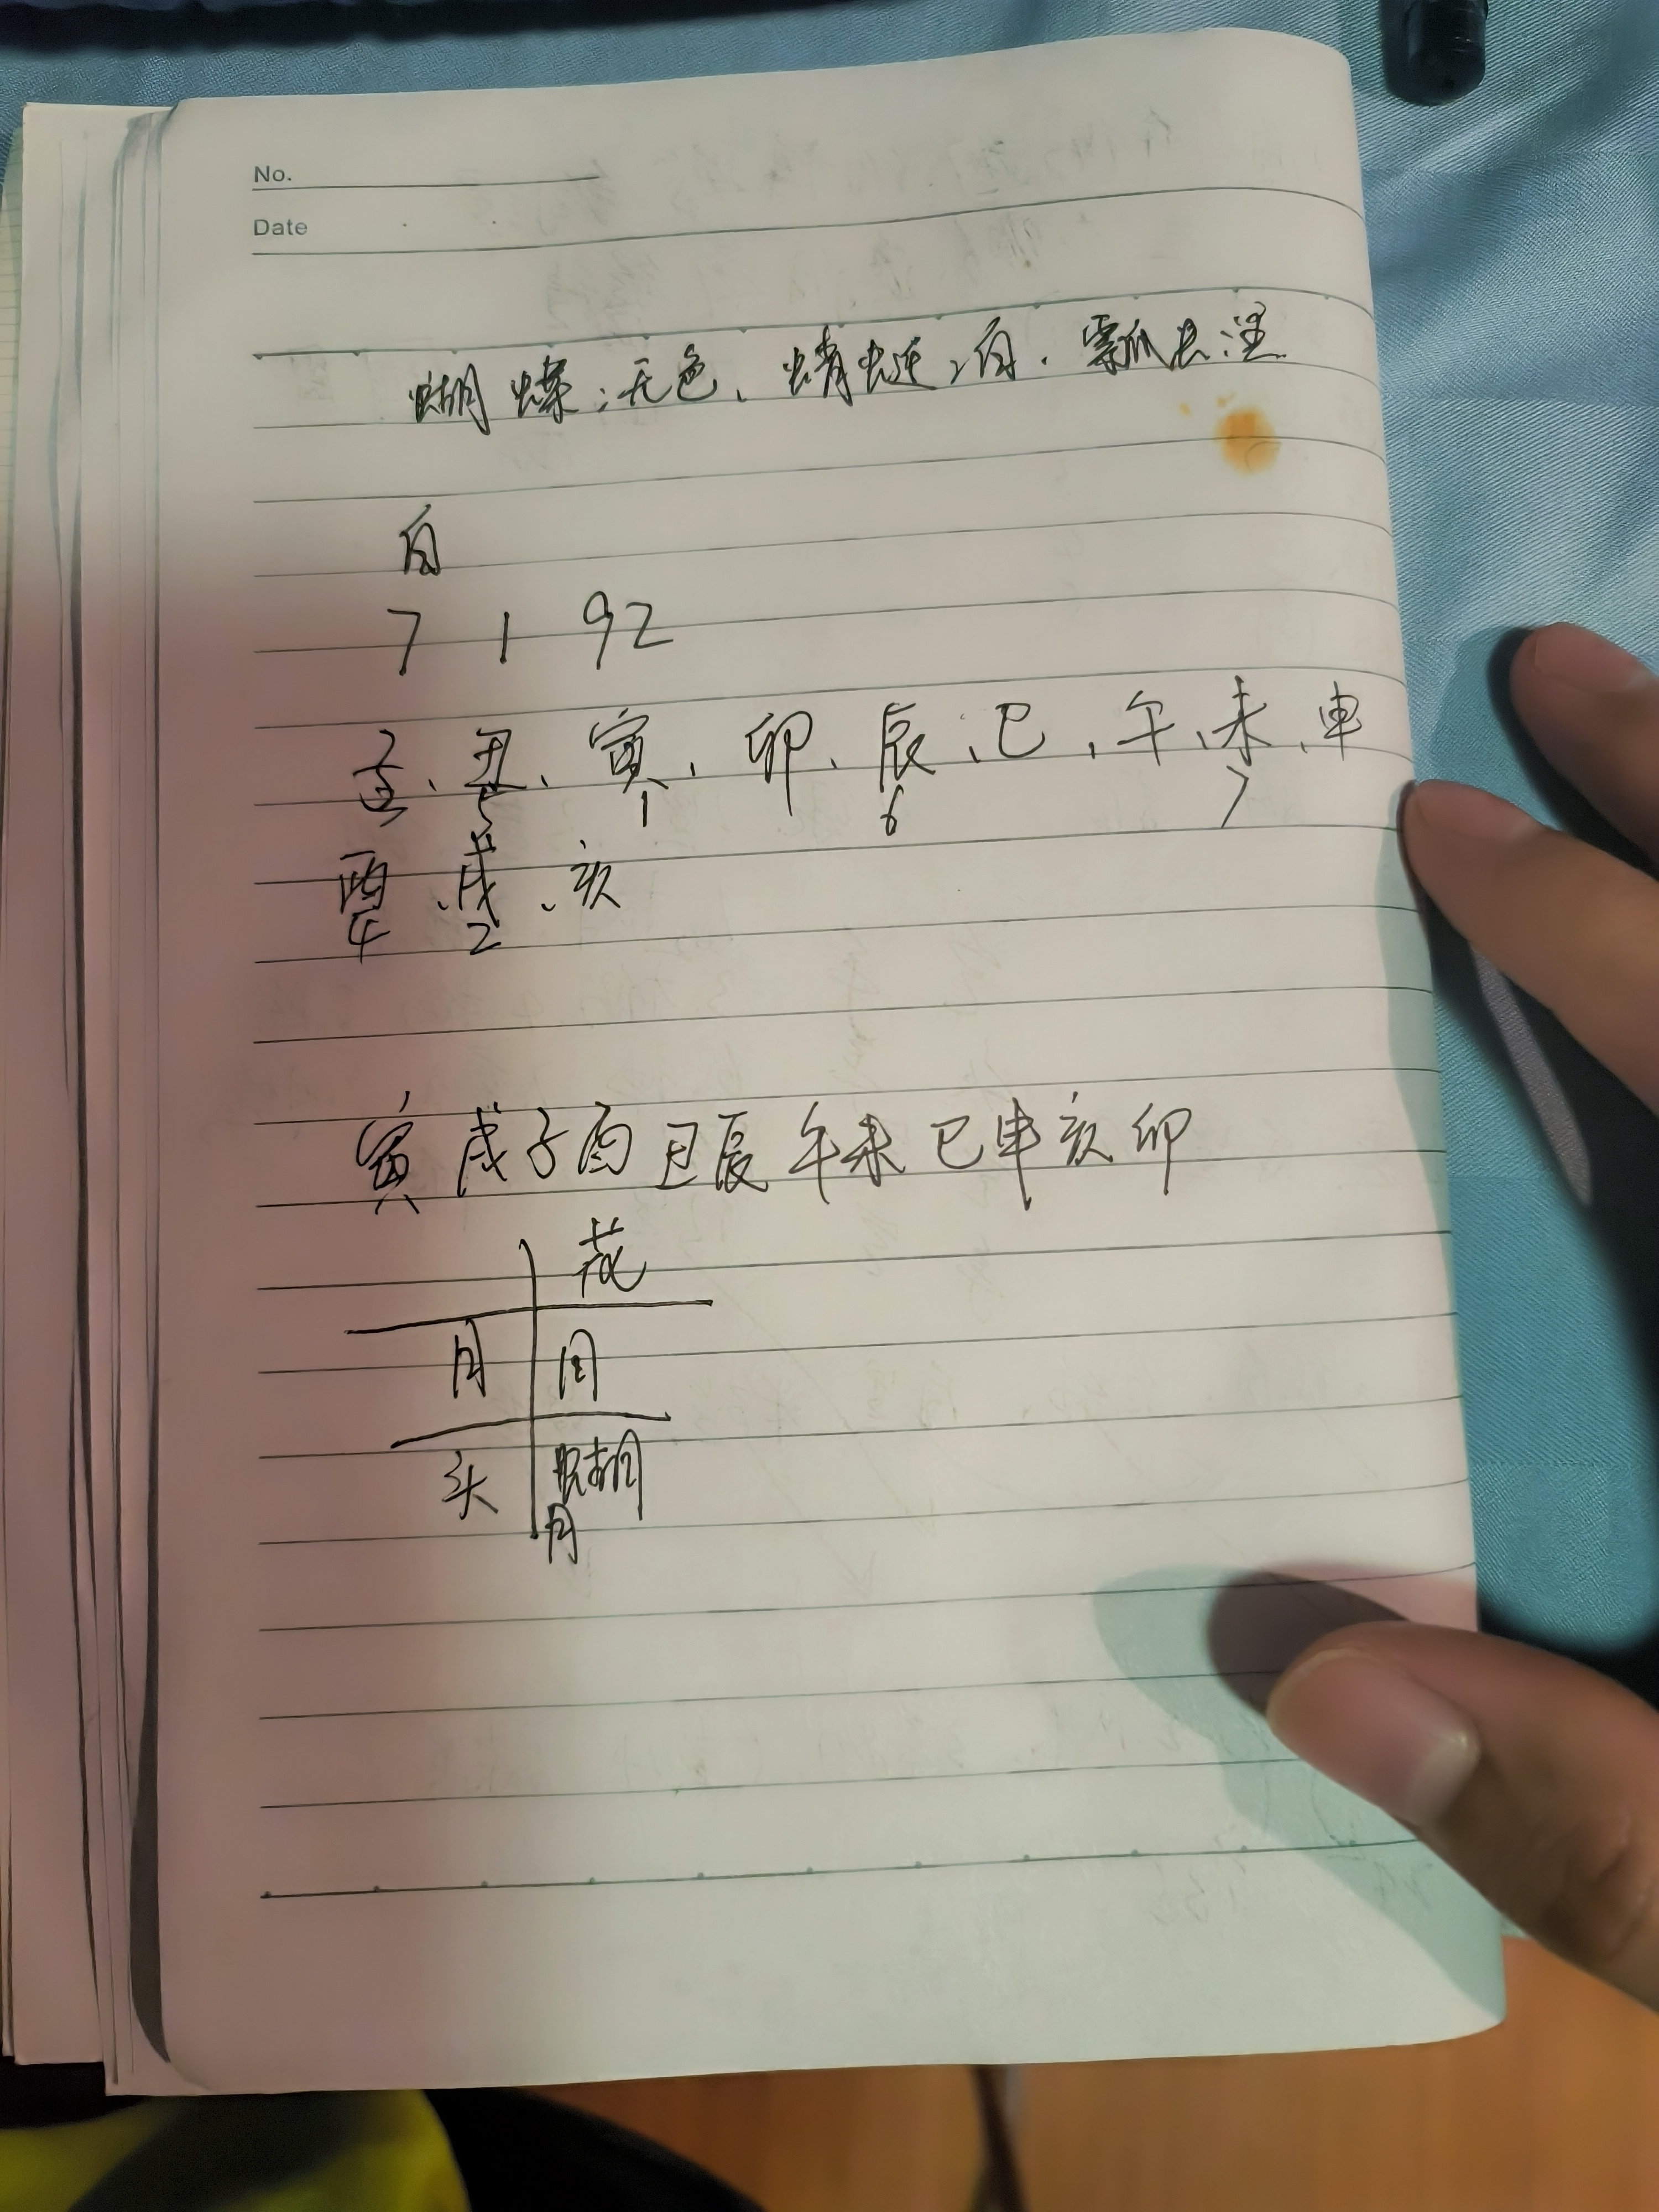 No.
Date
蝴蝶:无色、蜻蜓:白.瓢虫:
白
7 1 92
子、丑、寅、卯、辰、巳、午、未、申
3 5 1 6 7
酉、戌、亥
4 2
寅戌子酉丑辰午未巳申亥卯
花
月
头
月